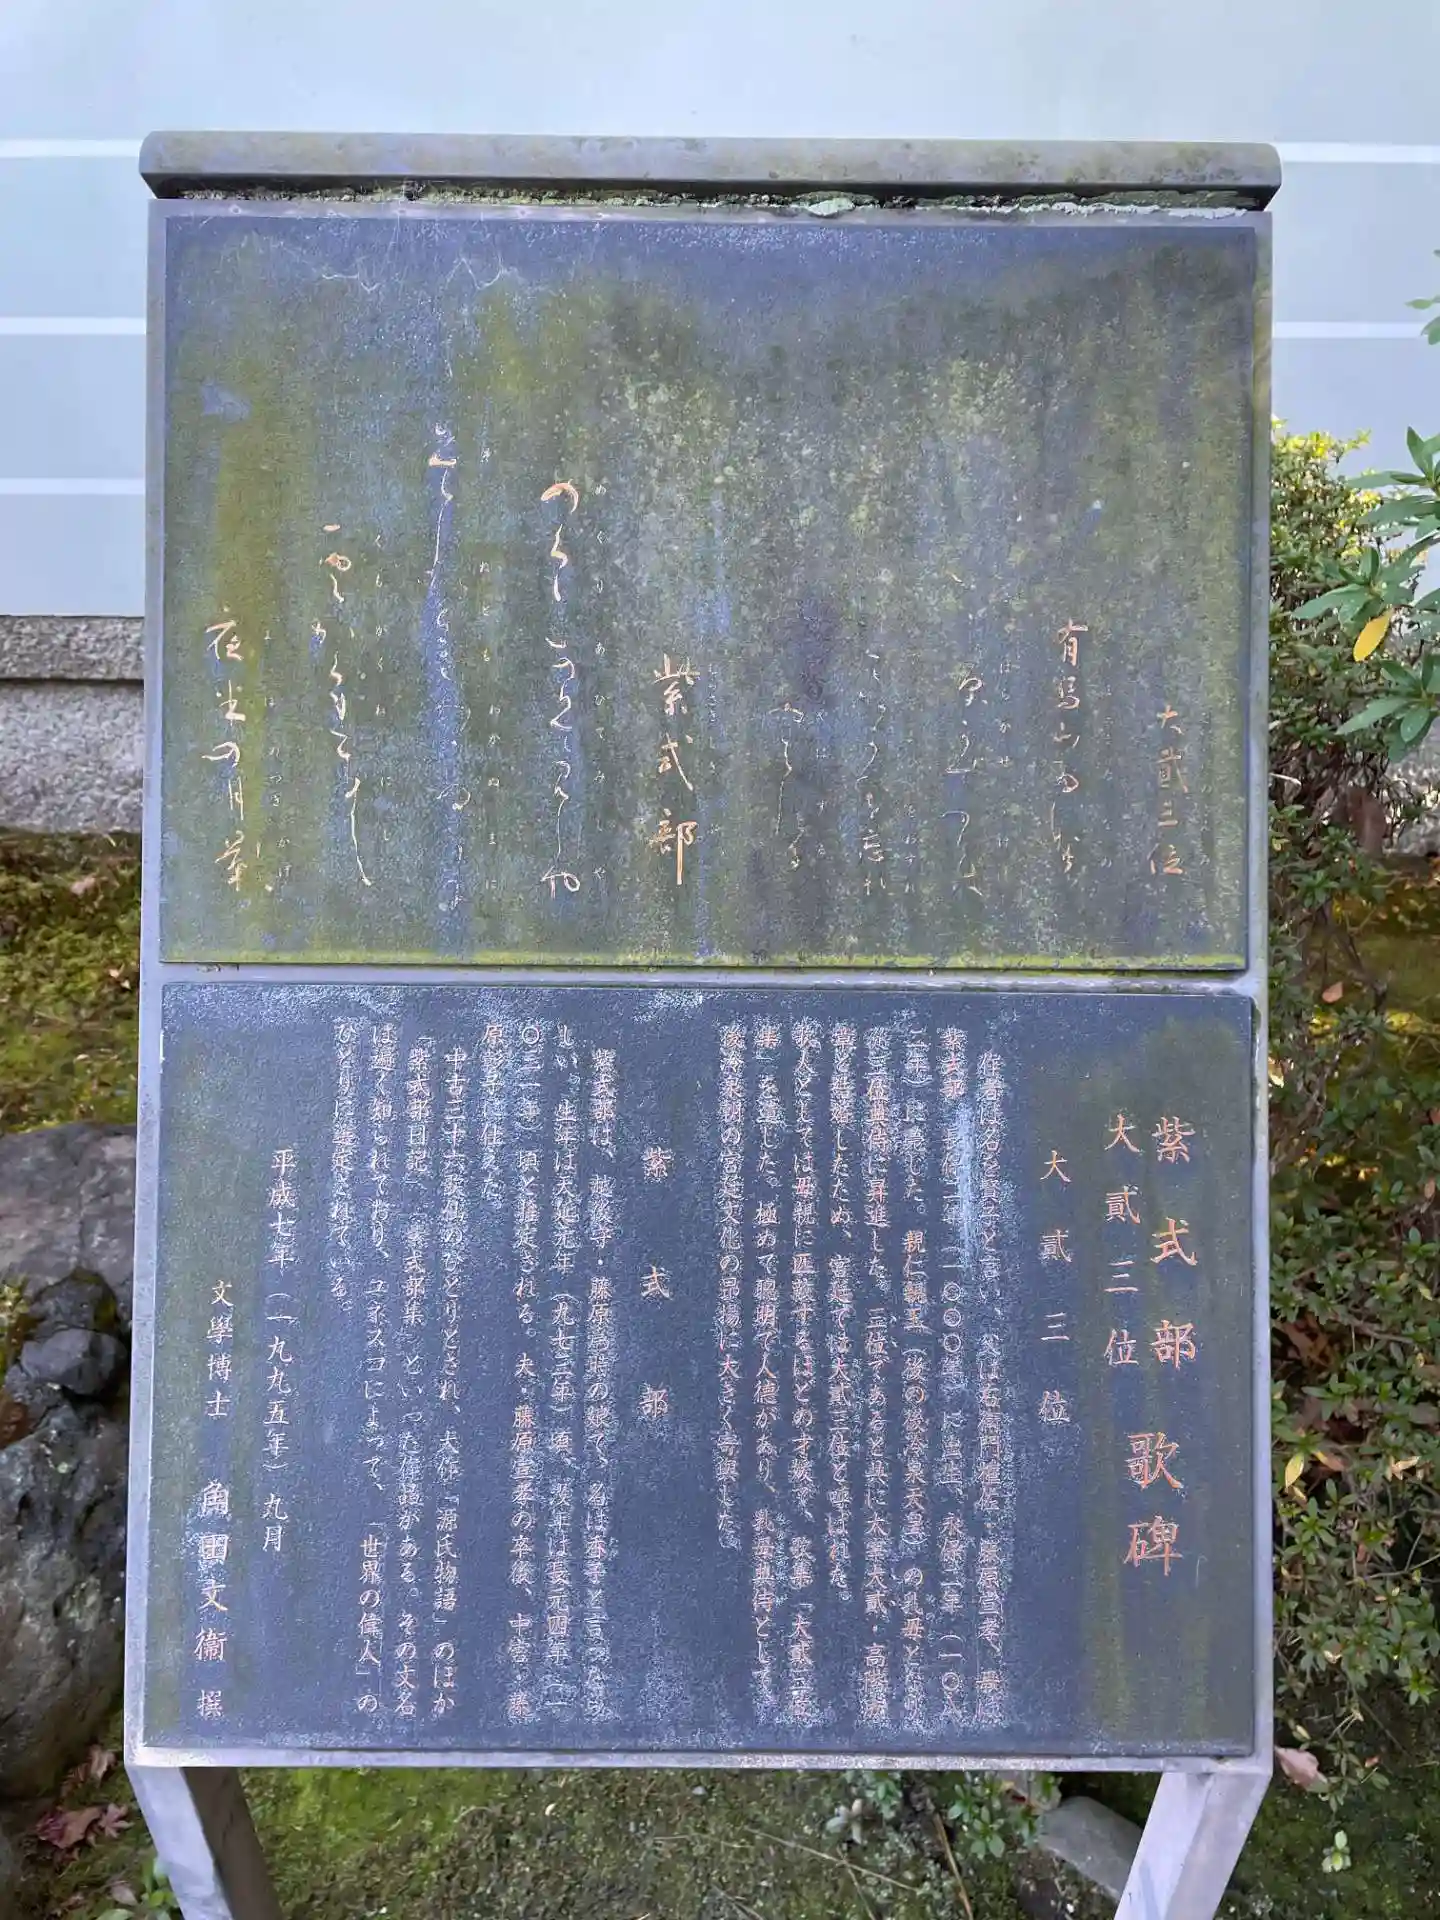 大貳三位
有馬山
忘れ
紫式部
むらさき
めぐりあひてみしや
それともわかぬまに
くもがくれにし
よはのつきかげ
夜半の月影
紫式部
大貳三位
歌碑
大貳三位
作者は名を賢子と言い、父は右衛門権佐・藤原宣孝、母は
紫式部。長保二年(一〇〇〇年)に出生、永保二年(一〇八
二年)に薨じた。親仁親王(後の後冷泉天皇)の乳母となり
従三位典侍に昇進した。三位であると共に大宰大貳・高階成
章と結婚したため、宮廷では大貳三位と呼ばれた。
歌人としては母親に匹敵するほどの才媛で、歌集「大貳三位
集」を遺した。極めて聰明で人德があり、乳母典侍として
後冷泉朝の宮廷文化の昂揚に大きく寄與した。
紫式部
紫式部は、越後守・藤原為時の娘で、名は香子と言ったらら
しい。生年は天延元年(九七三年)頃、没年は長元四年(一
〇三一年)頃と推定される。夫・藤原宣孝の卒後、中宮・藤
原彰子に仕えた。
中古三十六歌仙のひとりとされ、大作「源氏物語」のほか
「紫式部日記」、「紫式部集」といった作品がある。その文名
は遍く知られており、ユネスコによって、「世界の偉人」の
ひとりに選定されている。
平成七年(一九九五年)九月
文學博士 角田文衞 撰